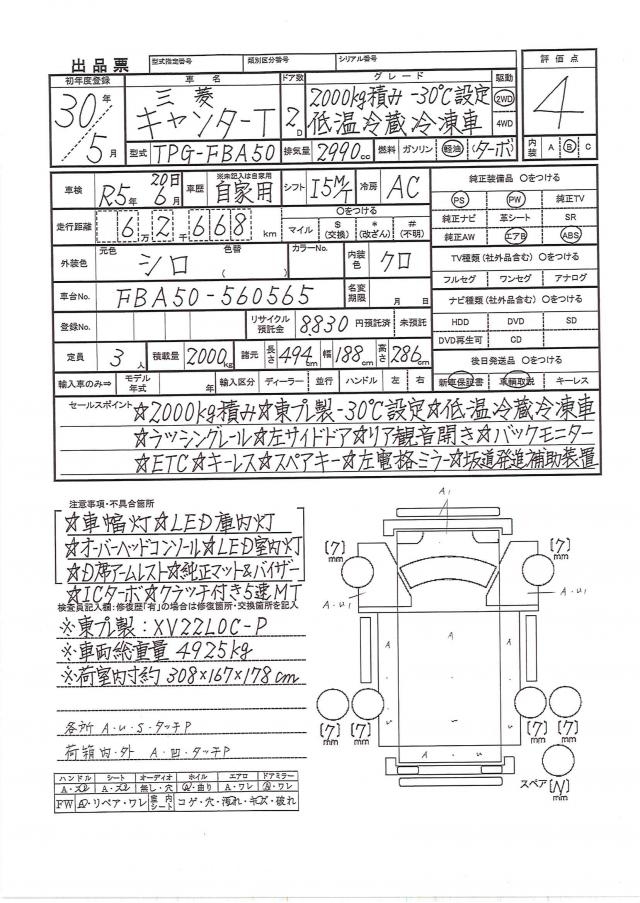 出品票
型式指定番号 類別区分番号 シリアル番号
初年度登録 車名 ドア数 グレード 駆動 評価点
30年 5月 三菱 キャンターT 2D 2000kg積み -30℃設定 低温冷蔵冷凍車 2WD 4WD 4
型式 TPG-FBA50 排気量 2990cc 燃料 ガソリン 軽油 (ターボ) 内装 A B C
車検 R5年 20日 6月 車歴 ※未記入は自家用 自家用 シフト I5M/T 冷房 AC
純正装備品 〇をつける
PS PW 純正TV
純正ナビ 革シート SR
純正AW エアB ABS
走行距離 6万2千668km
〇をつける
マイル $(交換) *(改ざん) #(不明)
TV種類(社外品含む) 〇をつける
フルセグ ワンセグ アナログ
外装色 元色 シロ 色替 カラーNo. 内装色 クロ
車台No. FBA50-560565 名変期限 月 日
ナビ種類(社外品含む) 〇をつける
HDD DVD SD
DVD再生可 CD
登録No. リサイクル預託金 8830 円預託済 未預託
定員 3人 積載量 2000kg 諸元 長さ 494cm 幅 188cm 高さ 286cm
後日発送品 〇をつける
新車保証書 車輌取説 キーレス
輸入車のみ⇒ モデル年式 年 輸入区分 ディーラー 並行 ハンドル 左 右
セールスポイント
☆2000kg積み☆東プレ製-30℃設定☆低温冷蔵冷凍車
☆ラッシングレール☆左サイドドア☆リア観音開き☆バックモニター
☆ETC☆キーレス☆スペアキー☆左電格ミラー☆坂道発進補助装置
注意事項・不具合箇所
☆車幅灯☆LED庫内灯
☆オーバーヘッドコンソール☆LED室内灯
☆D席アームレスト☆純正マット&バイザー
☆ICターボ☆クラッチ付き5速MT
検査員記入欄:修復歴「有」の場合は修復箇所・交換箇所を記入
※東プレ製:XV22LOC-P
※車両総重量 4925kg
※荷室内寸約 308×167×178cm
各所 A・U・S・タッチP
荷箱内・外 A・凹・タッチP
ハンドル シート オーディオ ホイル エアロ ドアミラー
A・スレ A・スレ 無し・穴 A・曲り A・ワレ A・ワレ
FW A・リペア・ワレ 室内シート コゲ・穴・汚れ・キズ・破れ
A1
[7]mm [7]mm
A・U1 A・U1
[7]mm [7]mm [7]mm [7]mm
A・U
スペア [N]mm